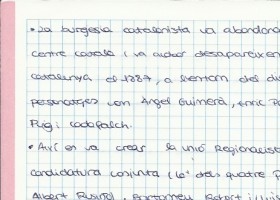 • La burgesia catalanista va abandona
centre català i va acabar desapareixen
catalunya el 1887, a
personatges com Àngel Guimerà, Enric P
Puig i Cadafalch.
• Així es va crear la unió Regionalist
candidatura conjunta (la dels quatre P
Albert Rusiñol, Bartomeu Robert i Lluís